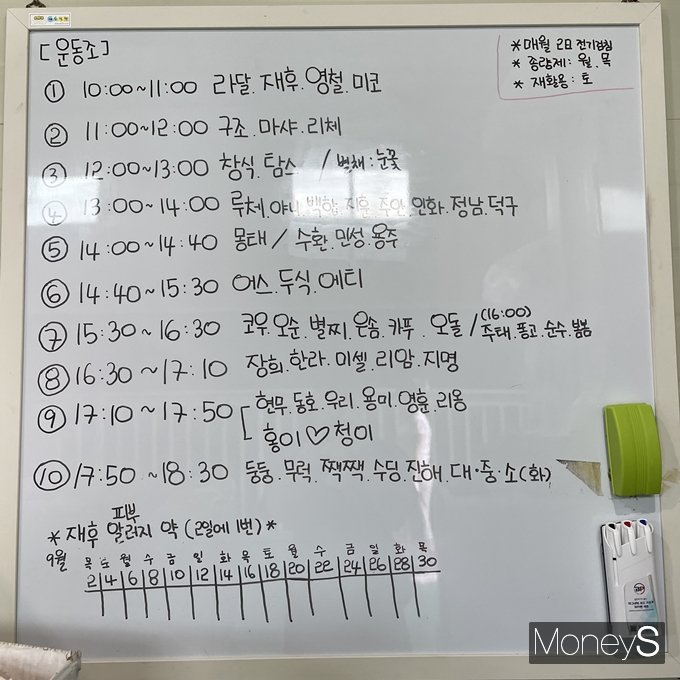 [운동조]
① 10:00~11:00 라달.재후.영철.미코
② 11:00~12:00 구조.마샤.리체
③ 12:00~13:00 창식.탐스 / 별채:눈꽃
④ 13:00~14:00 루체.야니.백합.지훈.주안.인화.정남.덕구
⑤ 14:00~14:40 몽태 / 수환.민성.용주
⑥ 14:40~15:30 어스.두식.에티
⑦ 15:30~16:30 코우.오순.별찌.은솜.카푸.오돌 / (16:00) 주태.퐁고.순수.봄봄
⑧ 16:30~17:10 장희.한라.미셸.리암.지명
⑨ 17:10~17:50 [현무.동호.우리.용미.영훈.리옹
홍이♡청이
⑩ 17:50~18:30 둥둥.무럭.짹짹.수딩.진해.대·중·소(화)
*매월 2日 전기검침
*종량제: 월.목
*재활용: 토
피부
*재후 알러지 약 (2일에 1번)*
9월 목 토 월 수 금 일 화 목 토 월 수 금 일 화 목
2 4 6 8 10 12 14 16 18 20 22 24 26 28 30
MoneyS